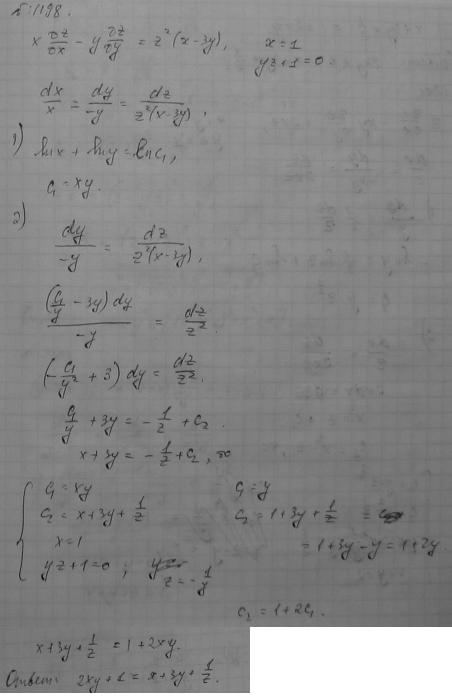 №1198.
x ∂z/∂x - y ∂z/∂y = z²(x-3y), x=1
yz+1=0
dx/x = dy/-y = dz/z²(x-3y),
1) ln x + ln y = ln C₁,
C₁ = xy.
2)
dy/-y = dz/z²(x-3y),
(C₁/y - 3y) dy/-y = dz/z².
(-C₁/y² + 3) dy = dz/z².
C₁/y + 3y = -1/z + C₂.
x+3y = -1/z + C₂, то
C₁ = xy C₁ = y
C₂ = x+3y+1/z C₂ = 1+3y+1/z =
x=1 = 1+3y-y = 1+2y.
yz+1=0; z = -1/y
C₂ = 1+2C₁.
x+3y+1/z = 1+2xy.
Ответ: 2xy+1 = x+3y+1/z.